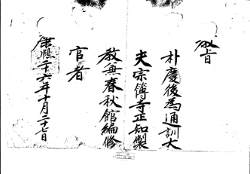 敎旨
朴慶後爲通訓大
夫宗簿寺正知製
敎兼春秋館編修
官者
康熙十六年十月二十七日